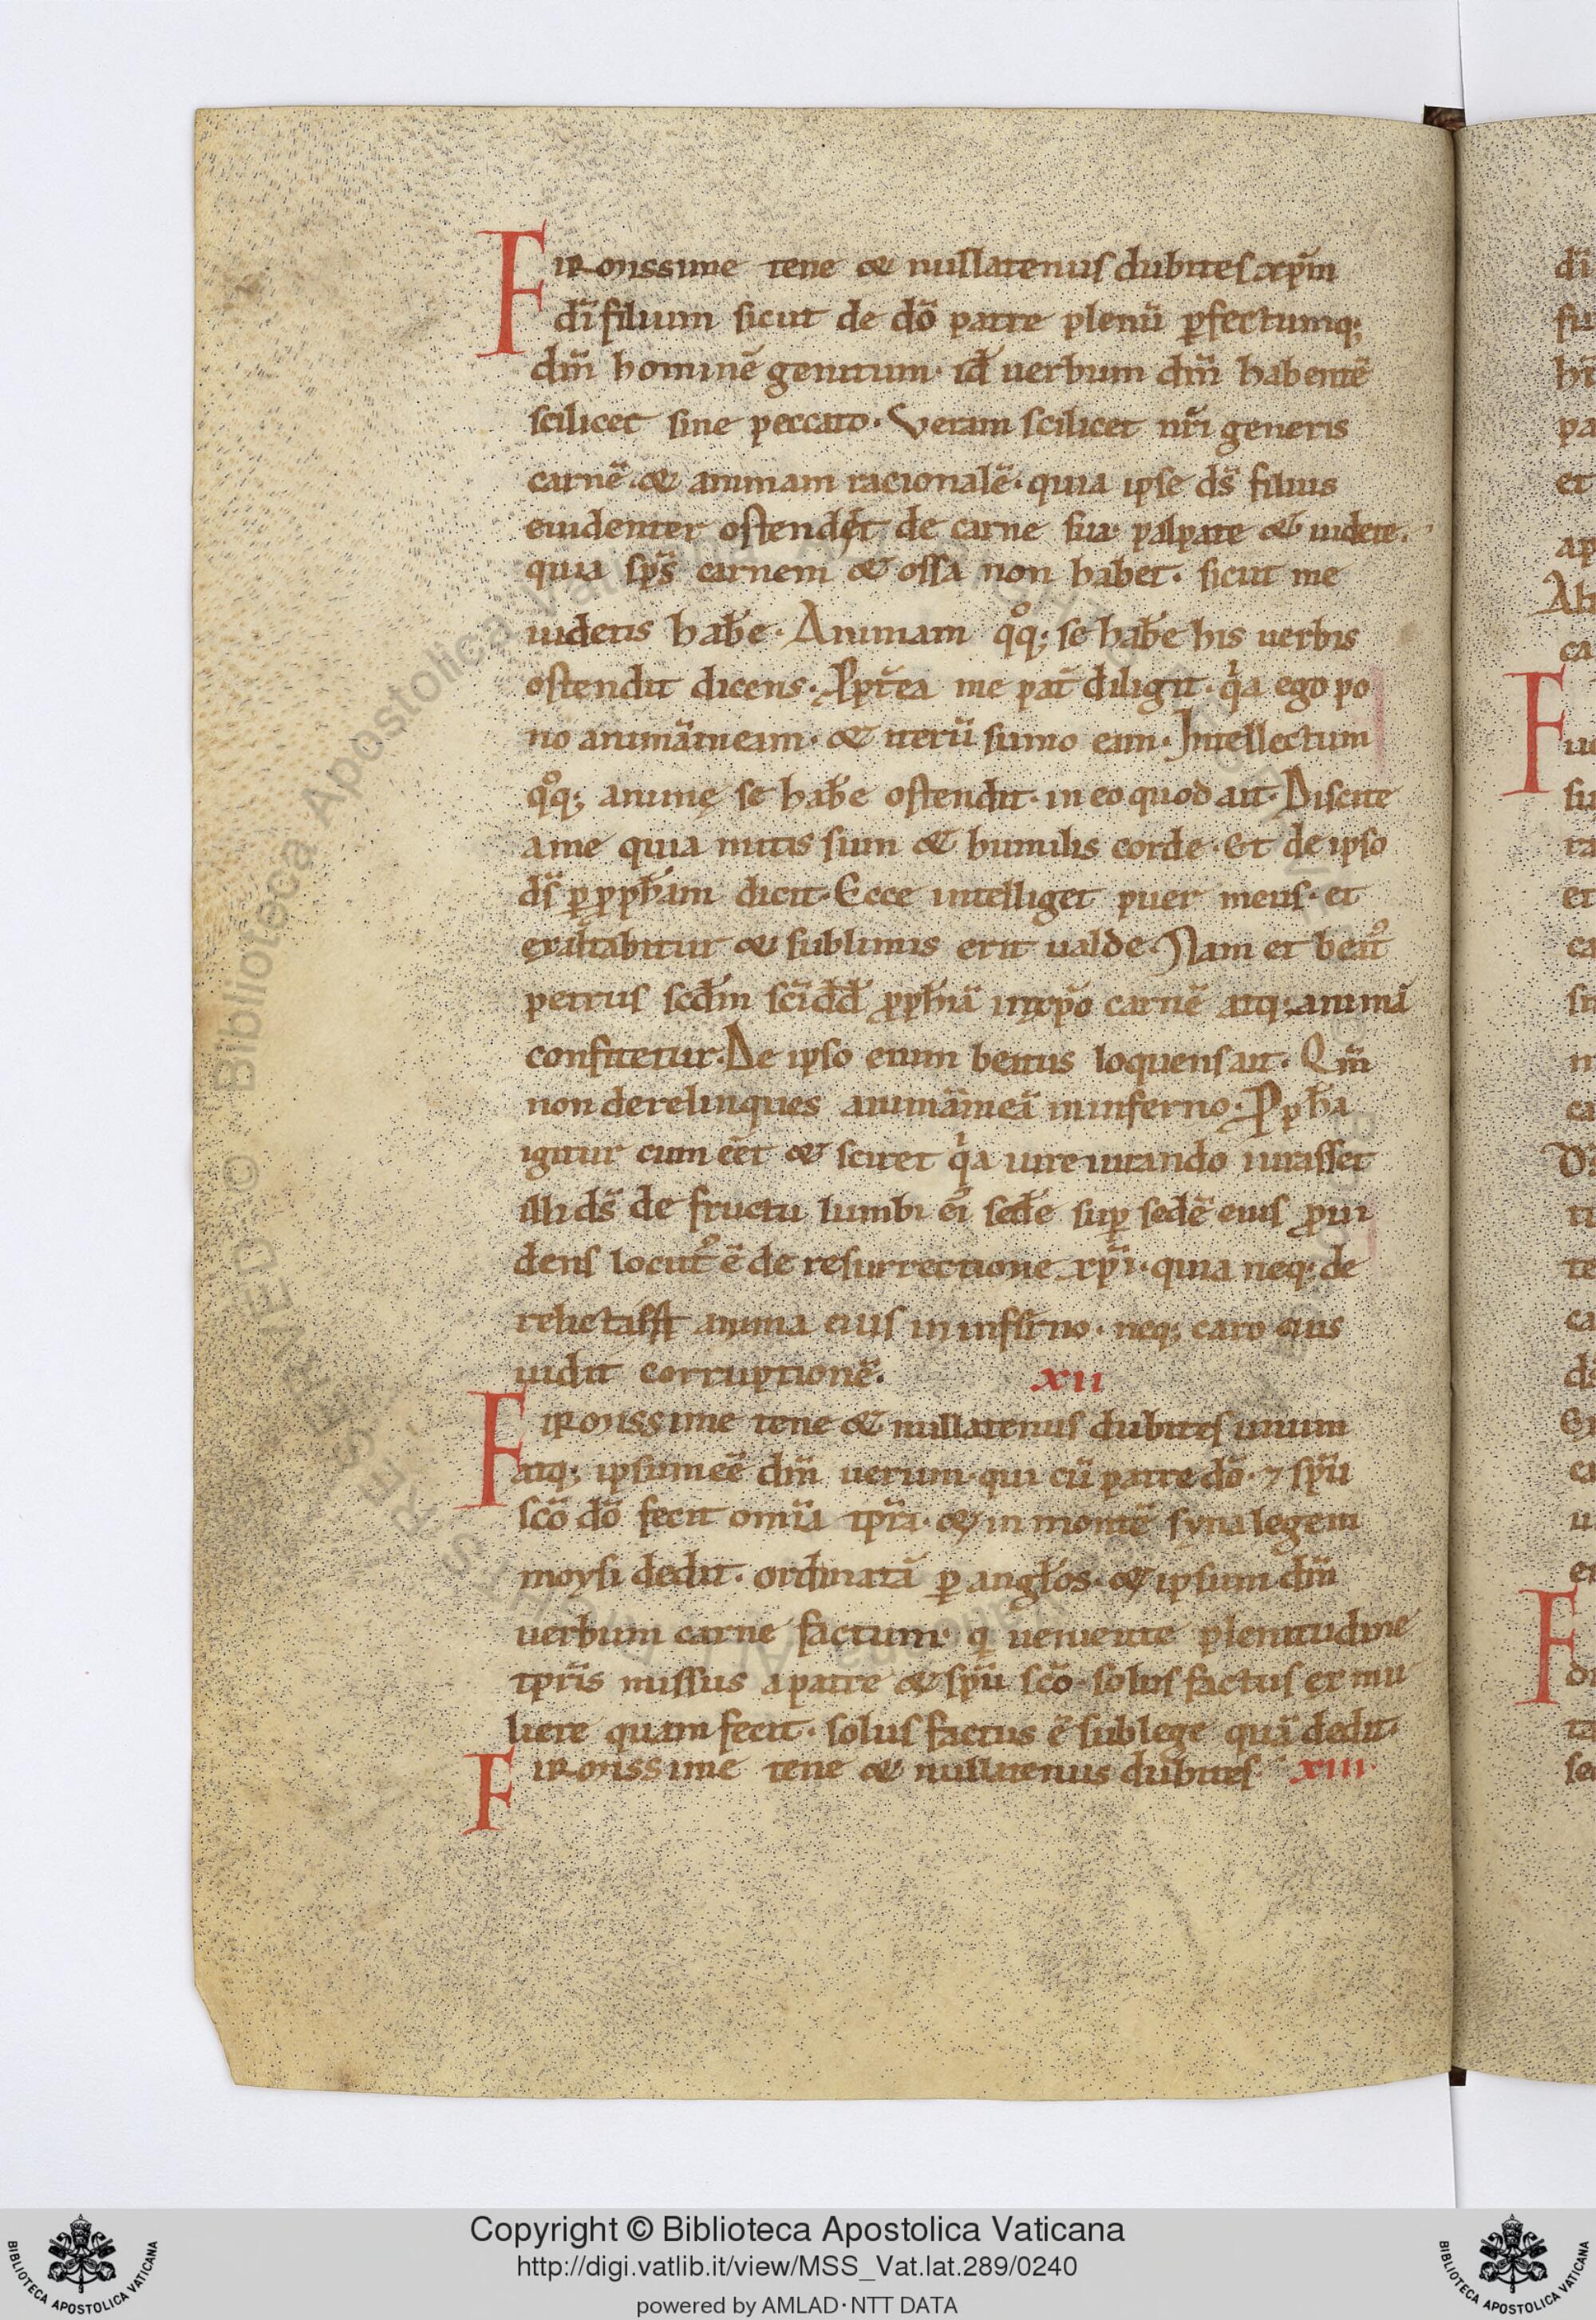 FIRMissime tene & nullatenus dubites xp̄m
dī filium sicut de dō patre plenū ꝑfectumq;
dm̄ hominē genitum· id ē uerbum dm̄ habentē
scilicet sine peccato· Veram scilicet nr̄i generis
carnē· & animam racionalē· quia ipse ds̄ filius
euidenter ostendet de carne sua· palpate & uidete·
quia sps̄ carnem & ossa non habet· sicut me
uidetis hab̄e· Animam qͦq; se hab̄e his uerbis
ostendit dicens· Ppt̄ea me pat̄ diligit· qͥa ego po
no animā meam· & iterū sumo eam· Intellectum
qͦq; animę se hab̄e ostendit· in eo quod ait· Discite
a me quia mitis sum & humilis corde· Et de ipso
ds̄ ꝑ ꝓph̄am dicit· Ecce intelliget puer meus· et
exaltabitur & sublimis erit ualde· Nam et beatꝰ
petrus scd̄m sc̄i dd̄ ꝓph̄iā in xp̄o carnē atq; animā
confitetur· De ipso enim beatus loquens ait· Qm̄
non derelinques animā meā in inferno· Ꝓph̄a
igitur cum eēt & sciret qͥa iure iurando iurasset
illi ds̄ de fructu lumbi eiꝰ sed̄e suꝑ sedē eius ꝓui
dens locutꝰ ē de resurrectione xp̄i· quia neq; de
relicta est anima eius in inferno· neq; caro eius
uidit corruptionē· xii
FIRMissime tene & nullatenus dubites unum
atq; ipsum eē dm̄ uerum· qui cū patre dō· ⁊ spū
sc̄o dō fecit omīa tpr̄a· & in monte syna legem
moysi dedit· ordinatā ꝑ angl̄os· & ipsum dm̄
uerbum carne factum· qͥ ueniente plenitudine
tpr̄is missus a patre & spū sc̄o· solus factus ex mu
liere quam fecit· solus factus ē sub lege quā dedit·
FIRMissime tene & nullatenus dubites xiii·
Copyright © Biblioteca Apostolica Vaticana
http://digi.vatlib.it/view/MSS_Vat.lat.289/0240
powered by AMLAD·NTT DATA
BIBLIOTECA APOSTOLICA VATICANA
BIBLIOTECA APOSTOLICA VATICANA